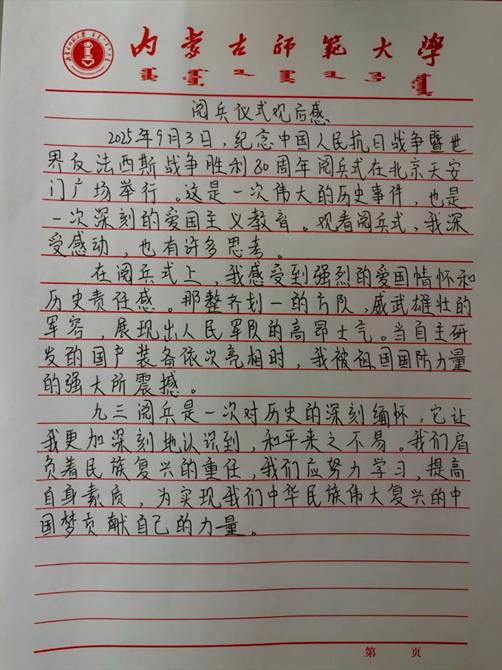 内蒙古师范大学
阅兵仪式观后感
2025年9月3日，纪念中国人民抗日战争暨世
界反法西斯战争胜利80周年阅兵式在北京天安
门广场举行。这是一次伟大的历史事件，也是
一次深刻的爱国主义教育。观看阅兵式，我深
受感动，也有许多思考。
在阅兵式上，我感受到强烈的爱国情怀和
历史责任感。那整齐划一的方队，威武雄壮的
军容，展现出人民军队的高昂士气。当自主研
发的国产装备依次亮相时，我被祖国国防力量
的强大所震撼。
九三阅兵是一次对历史的深刻缅怀，它让
我更加深刻地认识到，和平来之不易。我们肩
负着民族复兴的重任，我们应努力学习，提高
自身素质，为实现我们中华民族伟大复兴的中
国梦贡献自己的力量。
第 页